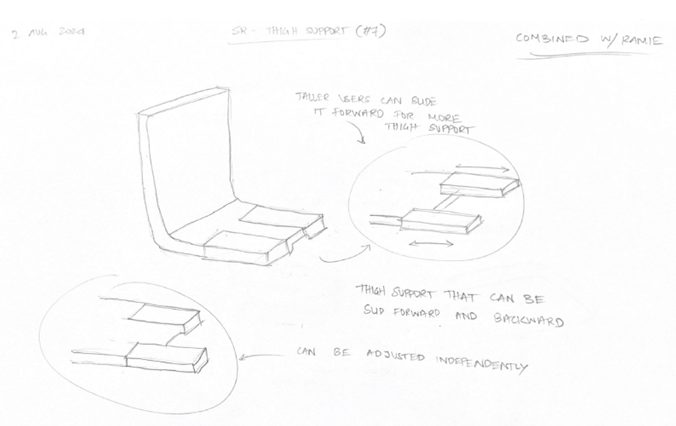 2 AUG 2024
SR - THIGH SUPPORT (#7)
COMBINED W/ RAMIE
TALLER USERS CAN SLIDE
IT FORWARD FOR MORE
THIGH SUPPORT
THIGH SUPPORT THAT CAN BE
SLID FORWARD AND BACKWARD
CAN BE ADJUSTED INDEPENDENTLY